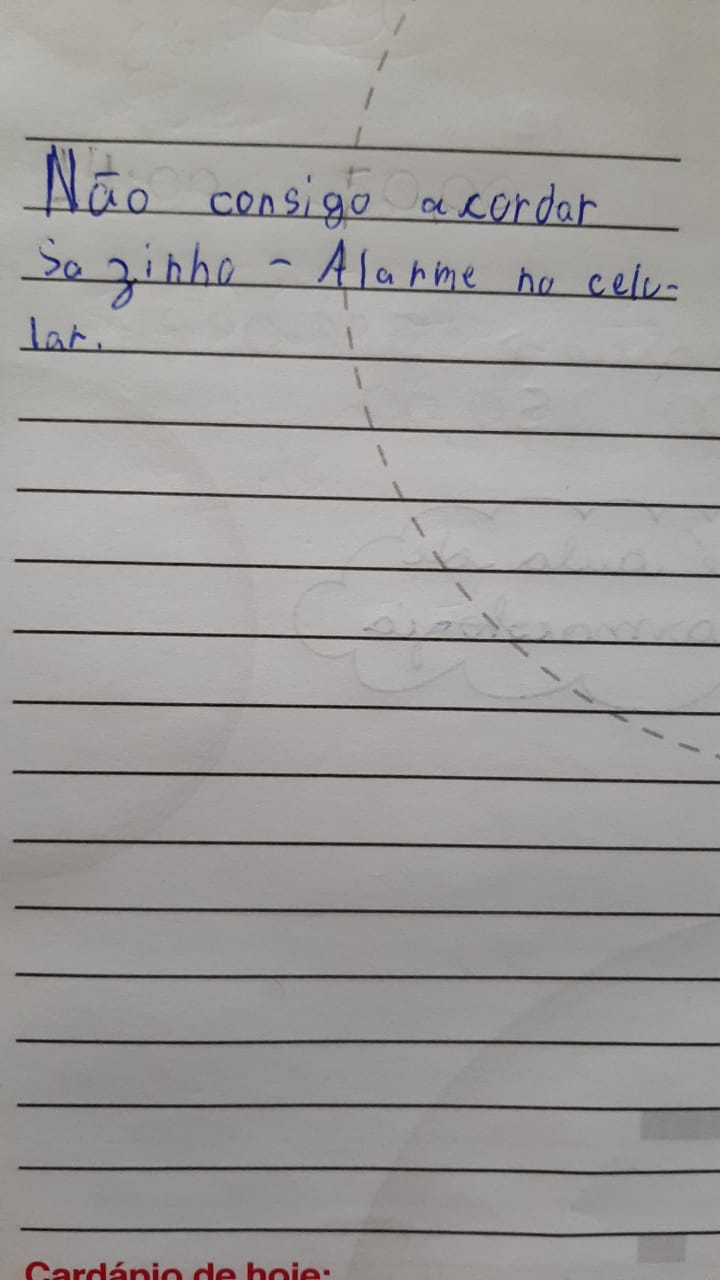 Não consigo acordar
Sozinho - Alarme no celu-
lar.
Cardápio de hoje: